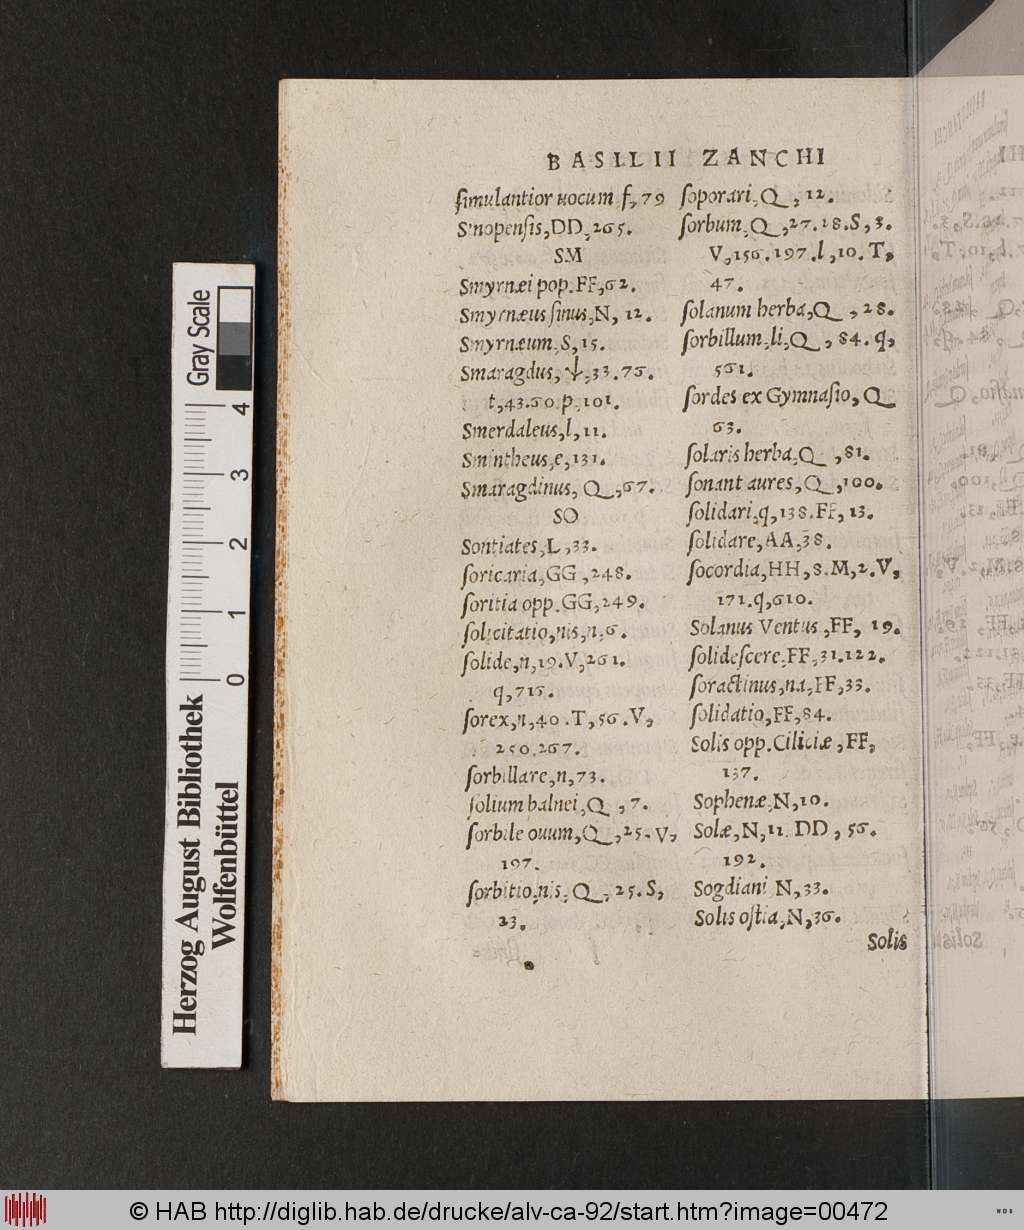 BASILII ZANCHI
ſimulantior uocum f, 79
Sinopenſis, DD, 265.
SM
Smyrnæi pop. FF, 62.
Smyrnæus ſinus, N, 12.
Smyrnæum, S, 15.
Smaragdus, ψ, 33.76.
t, 43.60 p, 101.
Smerdaleus, l, 11.
Smintheus, e, 131.
Smaragdinus, Q, 67.
SO
Sontiates, L, 33.
ſoricaria, GG, 248.
ſoritia opp. GG, 249.
ſolicitatio, nis, n, 6.
ſolide, n, 19. V, 261.
q, 715.
ſorex, n, 40. T, 56. V,
250.267.
ſorbillare, n, 73.
ſolium balnei, Q, 7.
ſorbile ouum, Q, 25. V,
197.
ſorbitio, nis, Q, 25. S,
23.
ſoporari, Q, 12.
ſorbum, Q, 27.28. S, 3.
V, 156.197. l, 10. T,
47.
ſolanum herba, Q, 28.
ſorbillum, li, Q, 84. q,
561.
ſordes ex Gymnaſio, Q
63.
ſolaris herba, Q, 81.
ſonant aures, Q, 100.
ſolidari, q, 138. FF, 13.
ſolidare, AA, 38.
ſocordia, HH, 8. M, 2. V,
171. q, 610.
Solanus Ventus, FF, 19.
ſolideſcere, FF, 31.122.
ſoractinus, na, FF, 33.
ſolidatio, FF, 84.
Solis opp. Ciliciæ, FF,
137.
Sophenæ, N, 10.
Solæ, N, 11. DD, 56.
192.
Sogdiani N, 33.
Solis oſtia, N, 36.
Solis
Gray Scale
4
3
2
1
0
Herzog August Bibliothek
Wolfenbüttel
© HAB http://diglib.hab.de/drucke/alv-ca-92/start.htm?image=00472
WDB